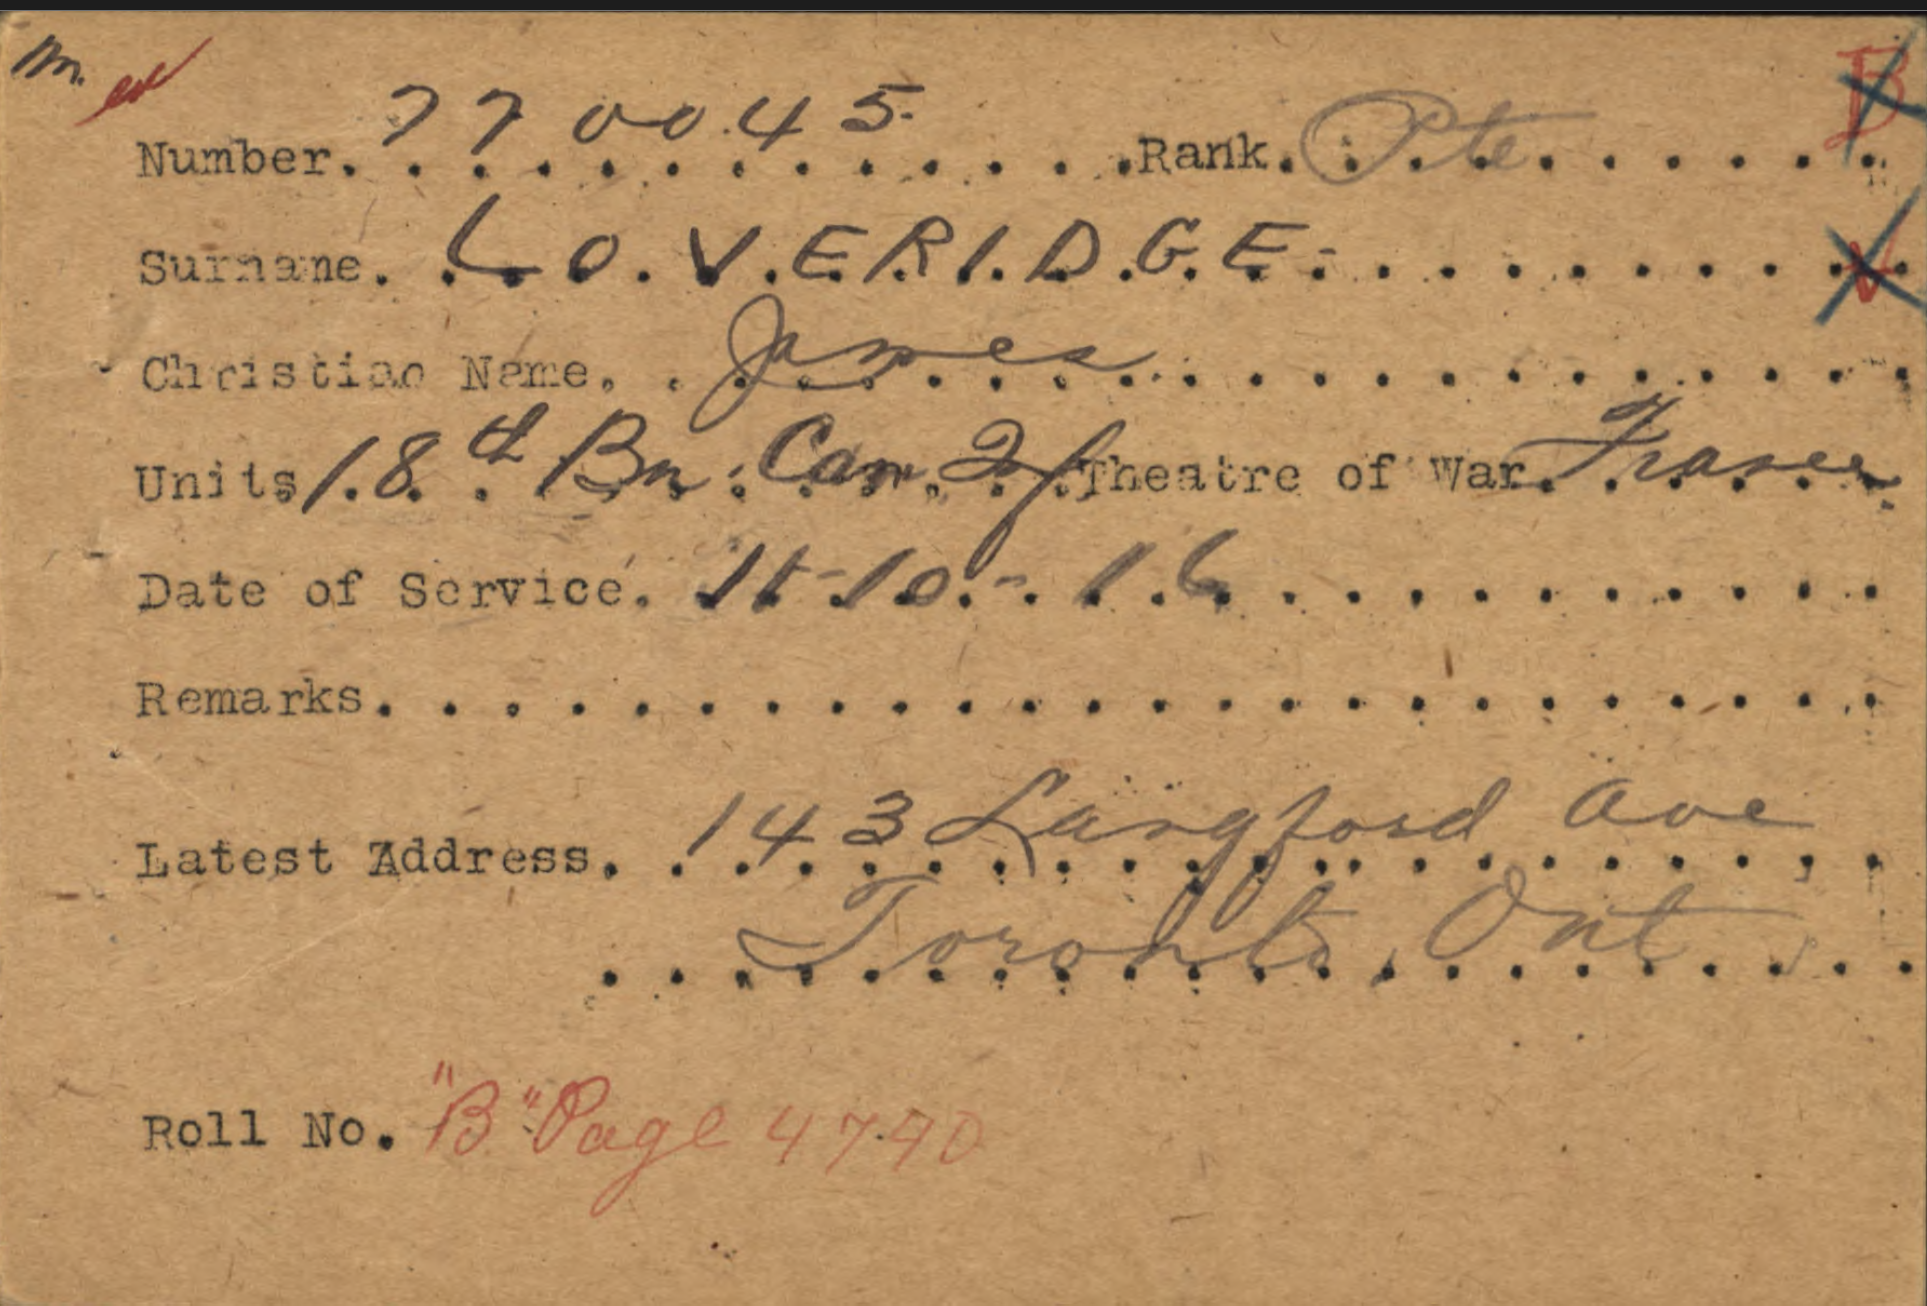 m.
Number. 770045. Rank. Pte B
Surname. LOVERIDGE. V
Christian Name. James
Units 18th Bn. Can. Inf Theatre of War. France
Date of Service. 11-10-16
Remarks.
Latest Address. 143 Langford Ave
Toronto, Ont
Roll No. "B" Page 4790